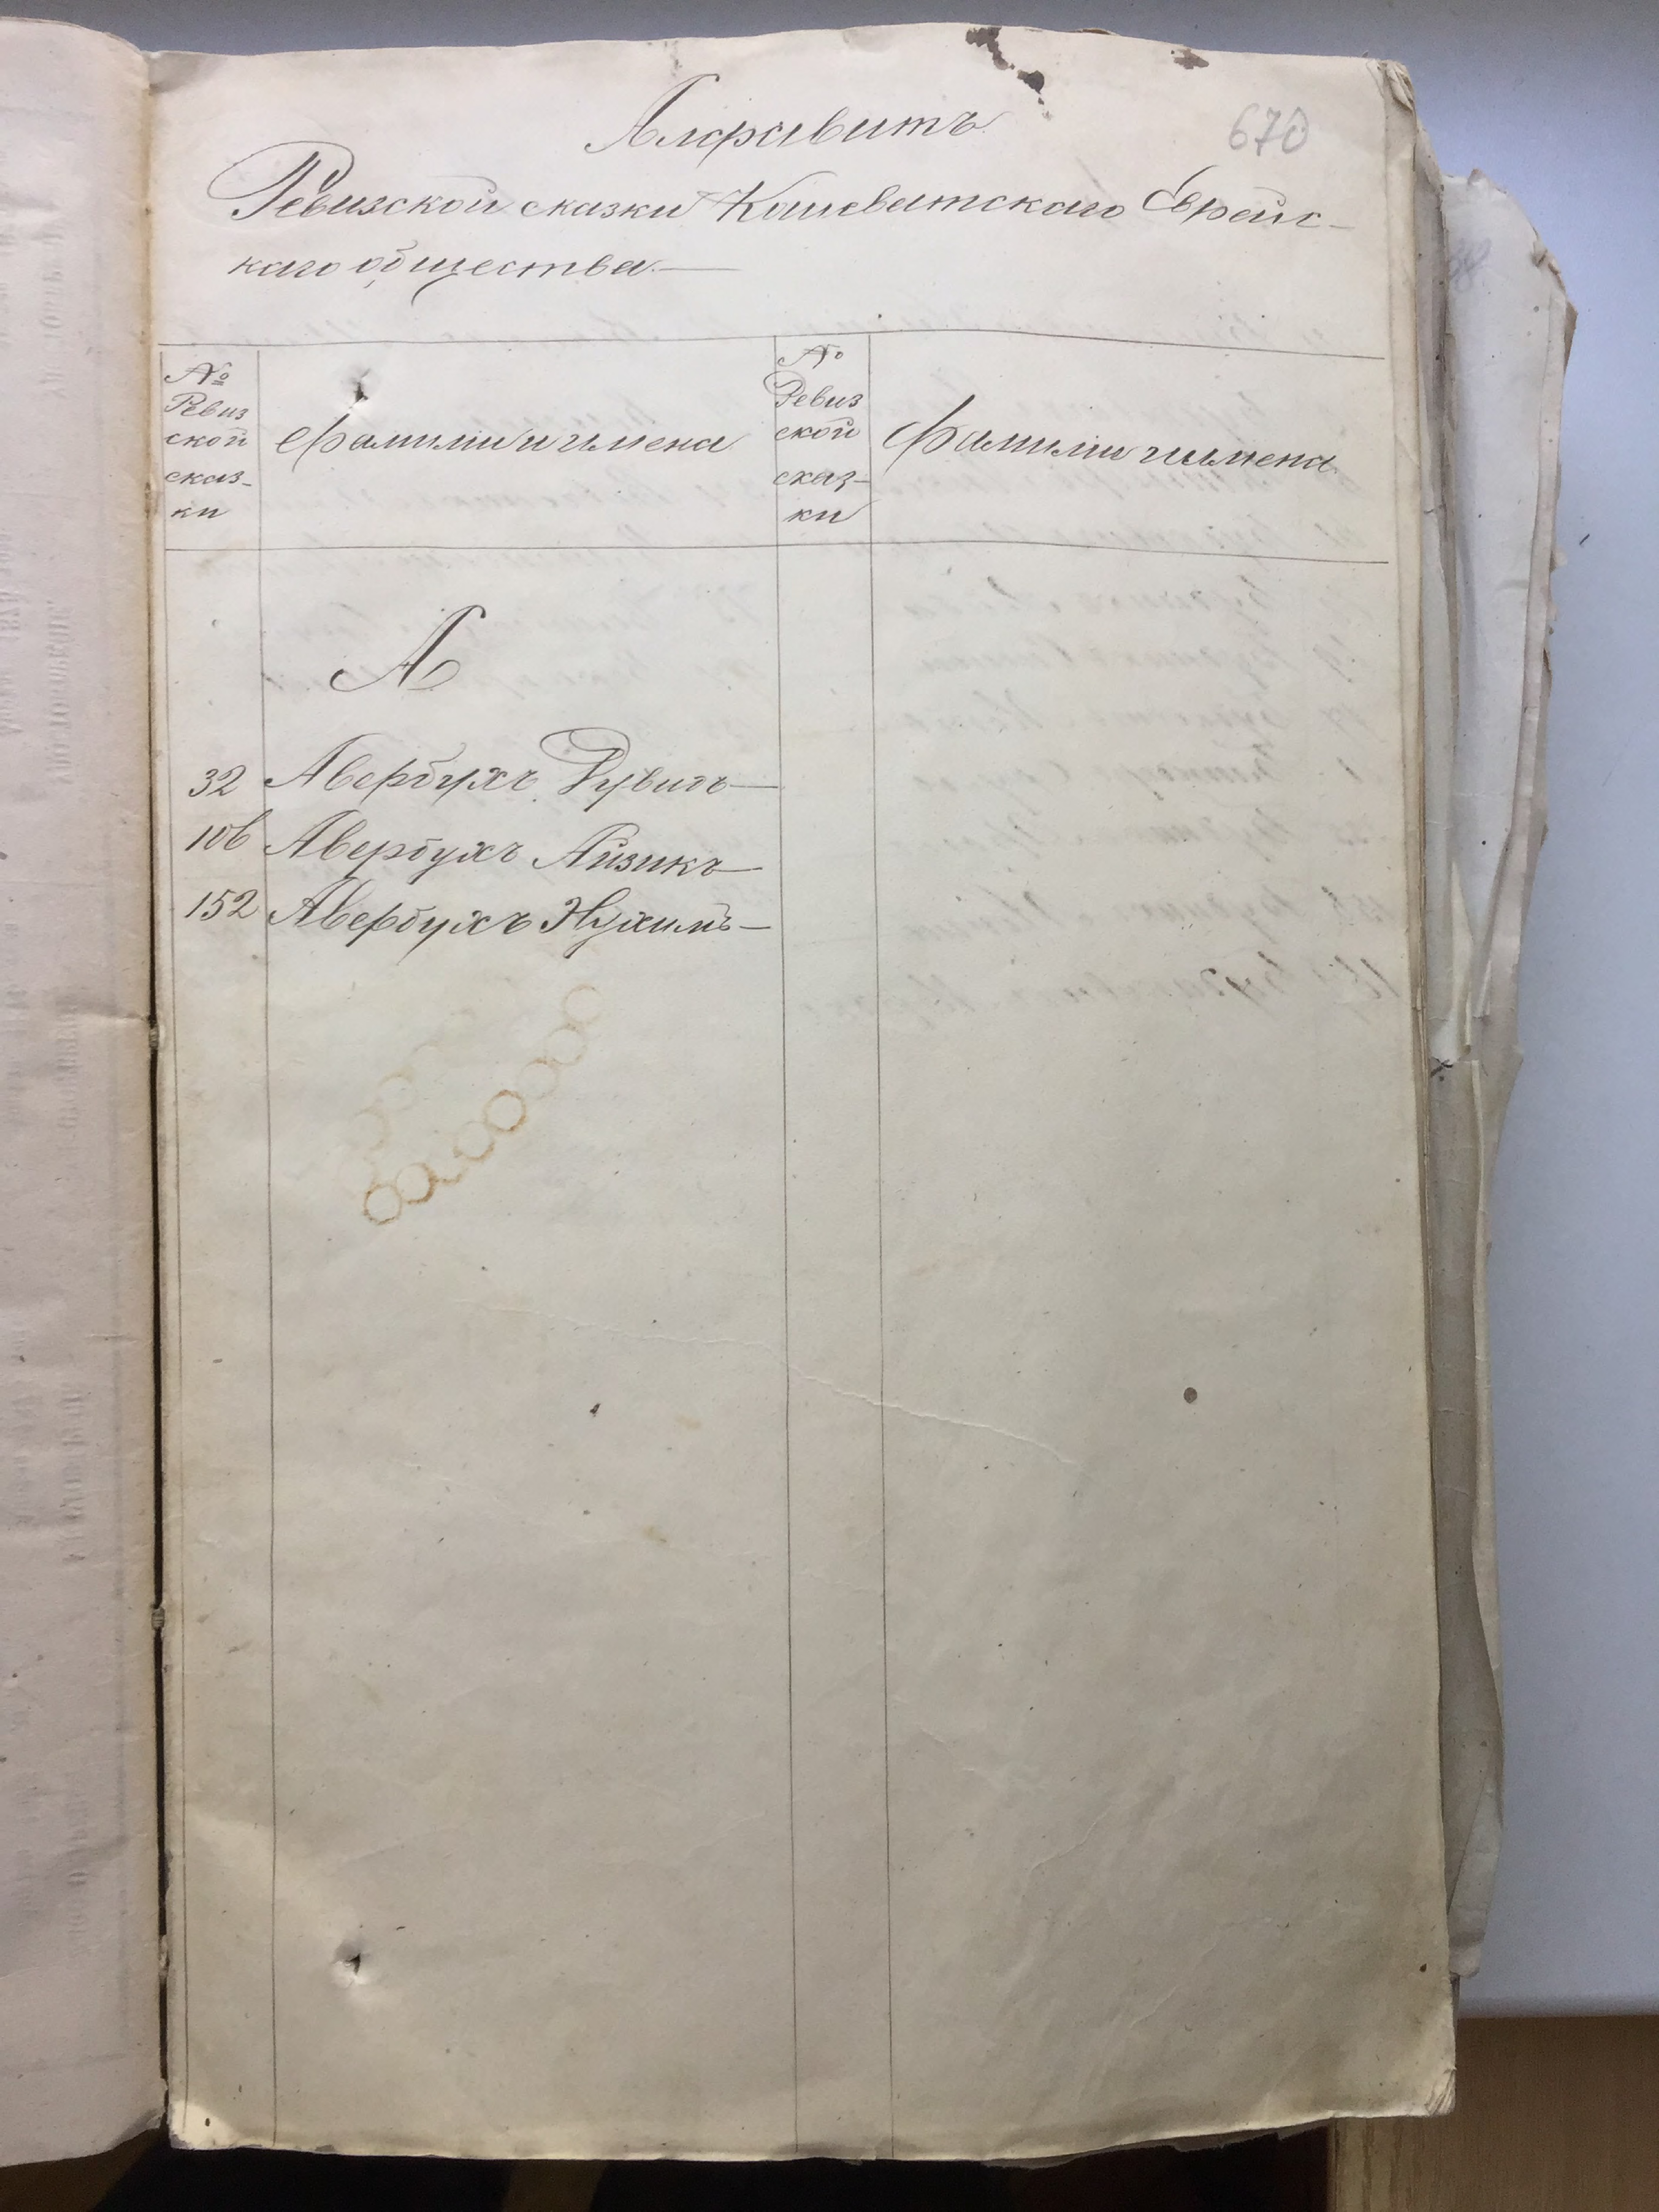 Алфавитъ
670
Ревизской сказки Кошеватского Еврейс-
каго общества.—
№
Ревиз
ской
сказ-
ки
Фамилии и имена
№
Ревиз
ской
сказ-
ки
Фамилии и имена
А
32 Авербухъ Рувинъ—
106 Авербухъ Айзикъ—
152 Авербухъ Нухимъ—